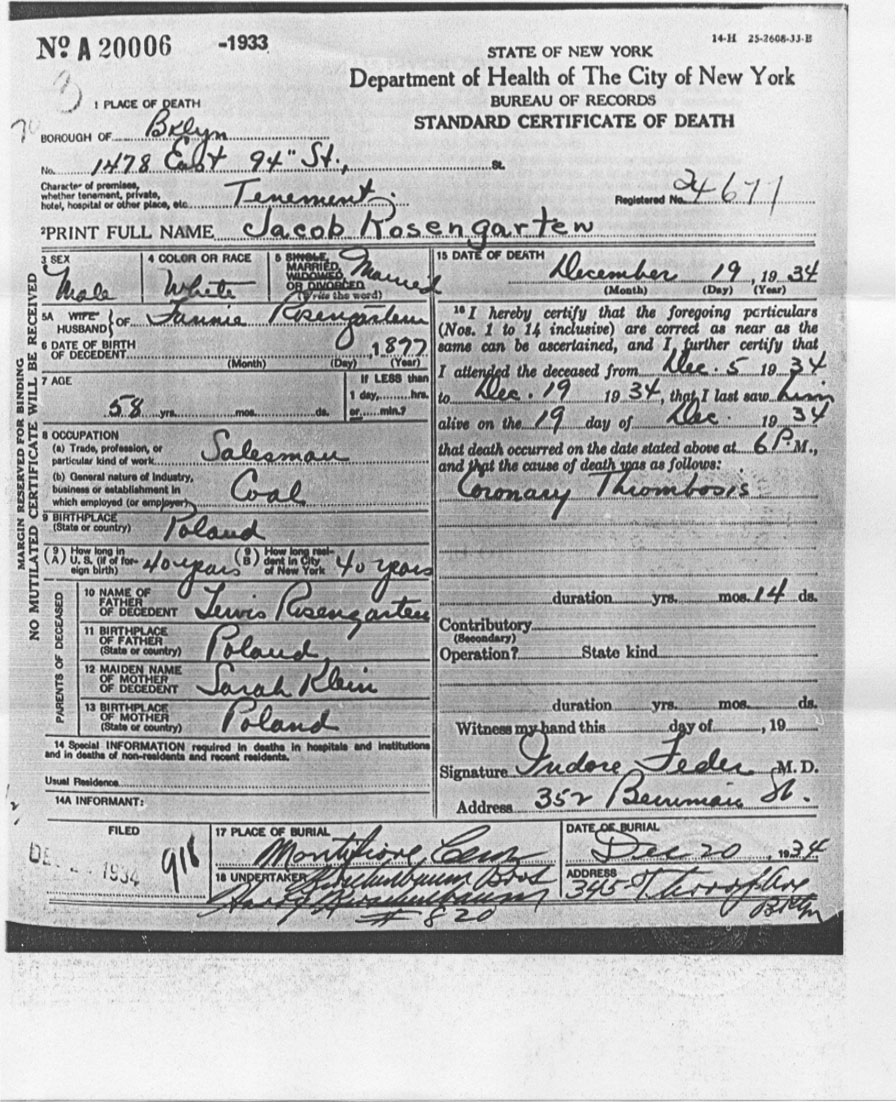 Nº A 20006 -1933
14-H 25-2608-33-B
STATE OF NEW YORK
Department of Health of The City of New York
BUREAU OF RECORDS
STANDARD CERTIFICATE OF DEATH
1 PLACE OF DEATH
BOROUGH OF Bklyn
No. 1478 East 94" St., St.
Character of premises,
whether tenement, private,
hotel, hospital or other place, etc. Tenement
Registered No. 24671
2 PRINT FULL NAME Jacob Rosengarten
MARGIN RESERVED FOR BINDING
NO MUTILATED CERTIFICATE WILL BE RECEIVED
3 SEX Male
4 COLOR OR RACE White
5 SINGLE,
MARRIED,
WIDOWED
OR DIVORCED
(Write the word) Married
5A WIFE
HUSBAND } OF Fannie Rosengarten
6 DATE OF BIRTH
OF DECEDENT , 1877
(Month) (Day) (Year)
7 AGE
58 yrs. mos. ds.
If LESS than
1 day, hrs.
or min.?
8 OCCUPATION
(a) Trade, profession, or
particular kind of work Salesman
(b) General nature of industry,
business or establishment in
which employed (or employer) Coal
9 BIRTHPLACE
(State or country) Poland
(9A) How long in
U. S. (if of for-
eign birth) 40 years
(9B) How long resi-
dent in City
of New York 40 years
PARENTS OF DECEASED
10 NAME OF
FATHER
OF DECEDENT Lewis Rosengarten
11 BIRTHPLACE
OF FATHER
(State or country) Poland
12 MAIDEN NAME
OF MOTHER
OF DECEDENT Sarah Klein
13 BIRTHPLACE
OF MOTHER
(State or country) Poland
14 Special INFORMATION required in deaths in hospitals and institutions
and in deaths of non-residents and recent residents.
Usual Residence
14A INFORMANT:
15 DATE OF DEATH
December 19, 1934
(Month) (Day) (Year)
16 I hereby certify that the foregoing particulars
(Nos. 1 to 14 inclusive) are correct as near as the
same can be ascertained, and I further certify that
I attended the deceased from Dec. 5 1934
to Dec. 19 1934, that I last saw him
alive on the 19 day of Dec. 1934
that death occurred on the date stated above at 6 P.M.,
and that the cause of death was as follows:
Coronary Thrombosis
duration yrs. mos. 14 ds.
Contributory
(Secondary)
Operation? State kind
duration yrs. mos. ds.
Witness my hand this day of , 19
Signature Isidore Feder M. D.
Address 352 Berriman St.
FILED
1934
918
17 PLACE OF BURIAL
Montifiore Cem
DATE OF BURIAL
Dec 20, 1934
18 UNDERTAKER Kirschenbaum Bros
Harry Kirschenbaum
# 820
ADDRESS
345 Throop Ave
Bklyn